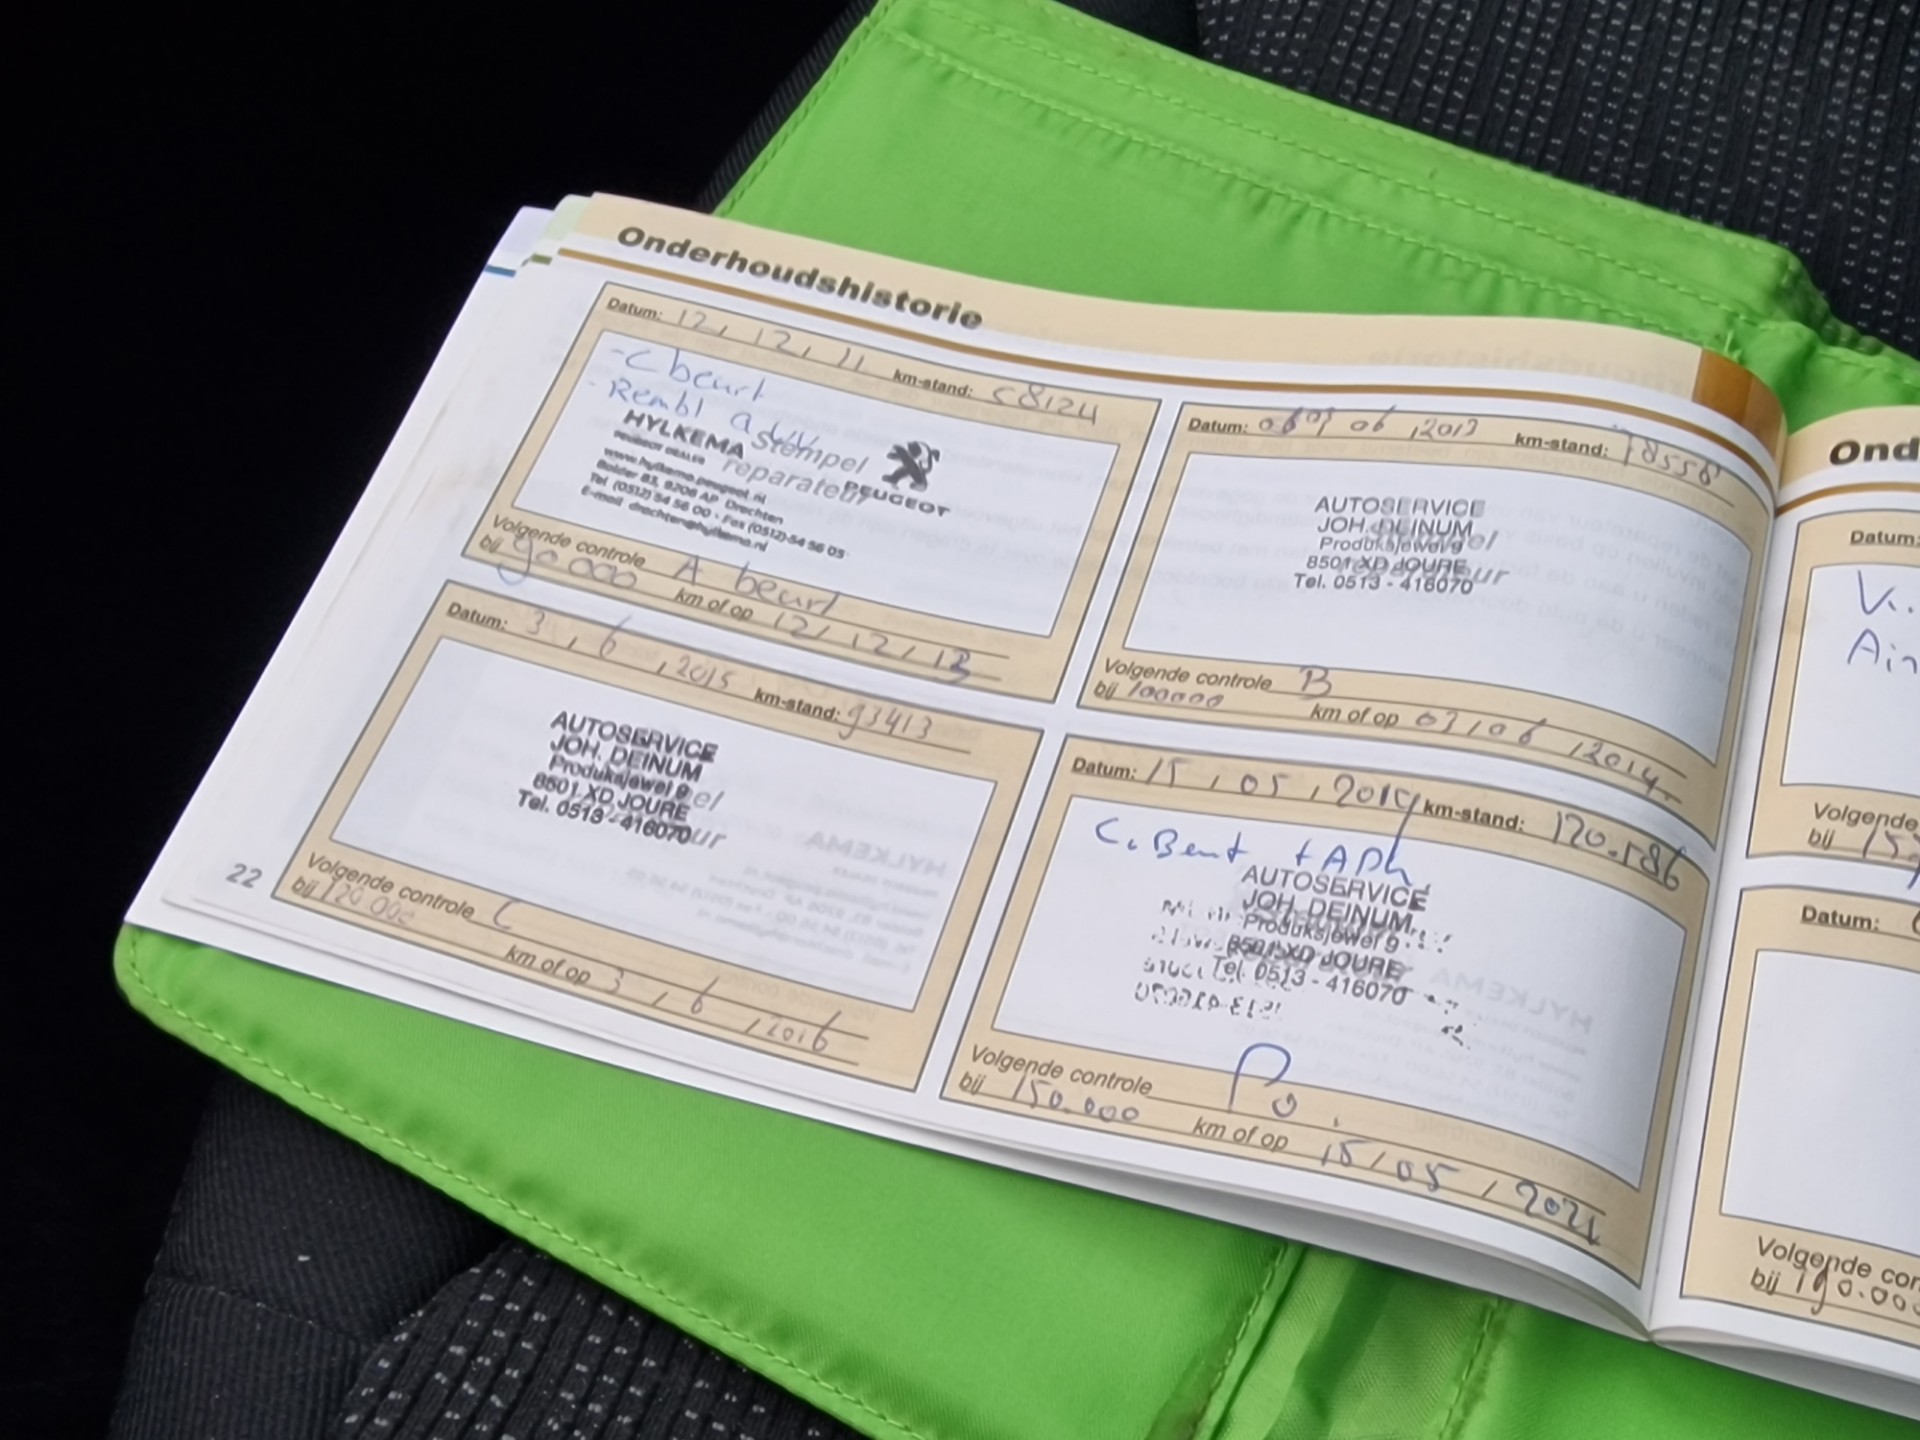 Onderhoudshistorie
Datum: 12, 12, 11 km-stand: 58124
- C beurt
- Rembl a
HYLKEMA
PEUGEOT DEALER
www.hylkema.peugeot.nl
Bolder 83, 9206 AP Drachten
Tel (0512) 54 56 00 - Fax (0512) 54 56 05
E-mail drachten@hylkema.nl
Stempel
reparateur
PEUGEOT
Volgende controle A beurt
bij 90 000 km of op 12, 12, 13
Datum: 06, 2013 km-stand: 78558
AUTOSERVICE
JOH. DEINUM
Produksjewei 9
8501 XD JOURE
Tel. 0513 - 416070
Volgende controle B
bij 100000 km of op 03, 06, 2014
Datum: 3, 6, 2015 km-stand: 93413
AUTOSERVICE
JOH. DEINUM
Produksjewei 9
8501 XD JOURE
Tel. 0513 - 416070
Volgende controle C
bij 120.000 km of op 3, 6, 2016
Datum: 15, 05, 2019 km-stand: 120.586
C. Beurt + APk
AUTOSERVICE
JOH. DEINUM
Produksjewei 9
8501 XD JOURE
Tel. 0513 - 416070
Volgende controle
bij 150.000 km of op 15, 05, 2021
22
Ond
Datum:
V..
Air
Volgende
bij
Datum:
Volgende con
bij 190.000